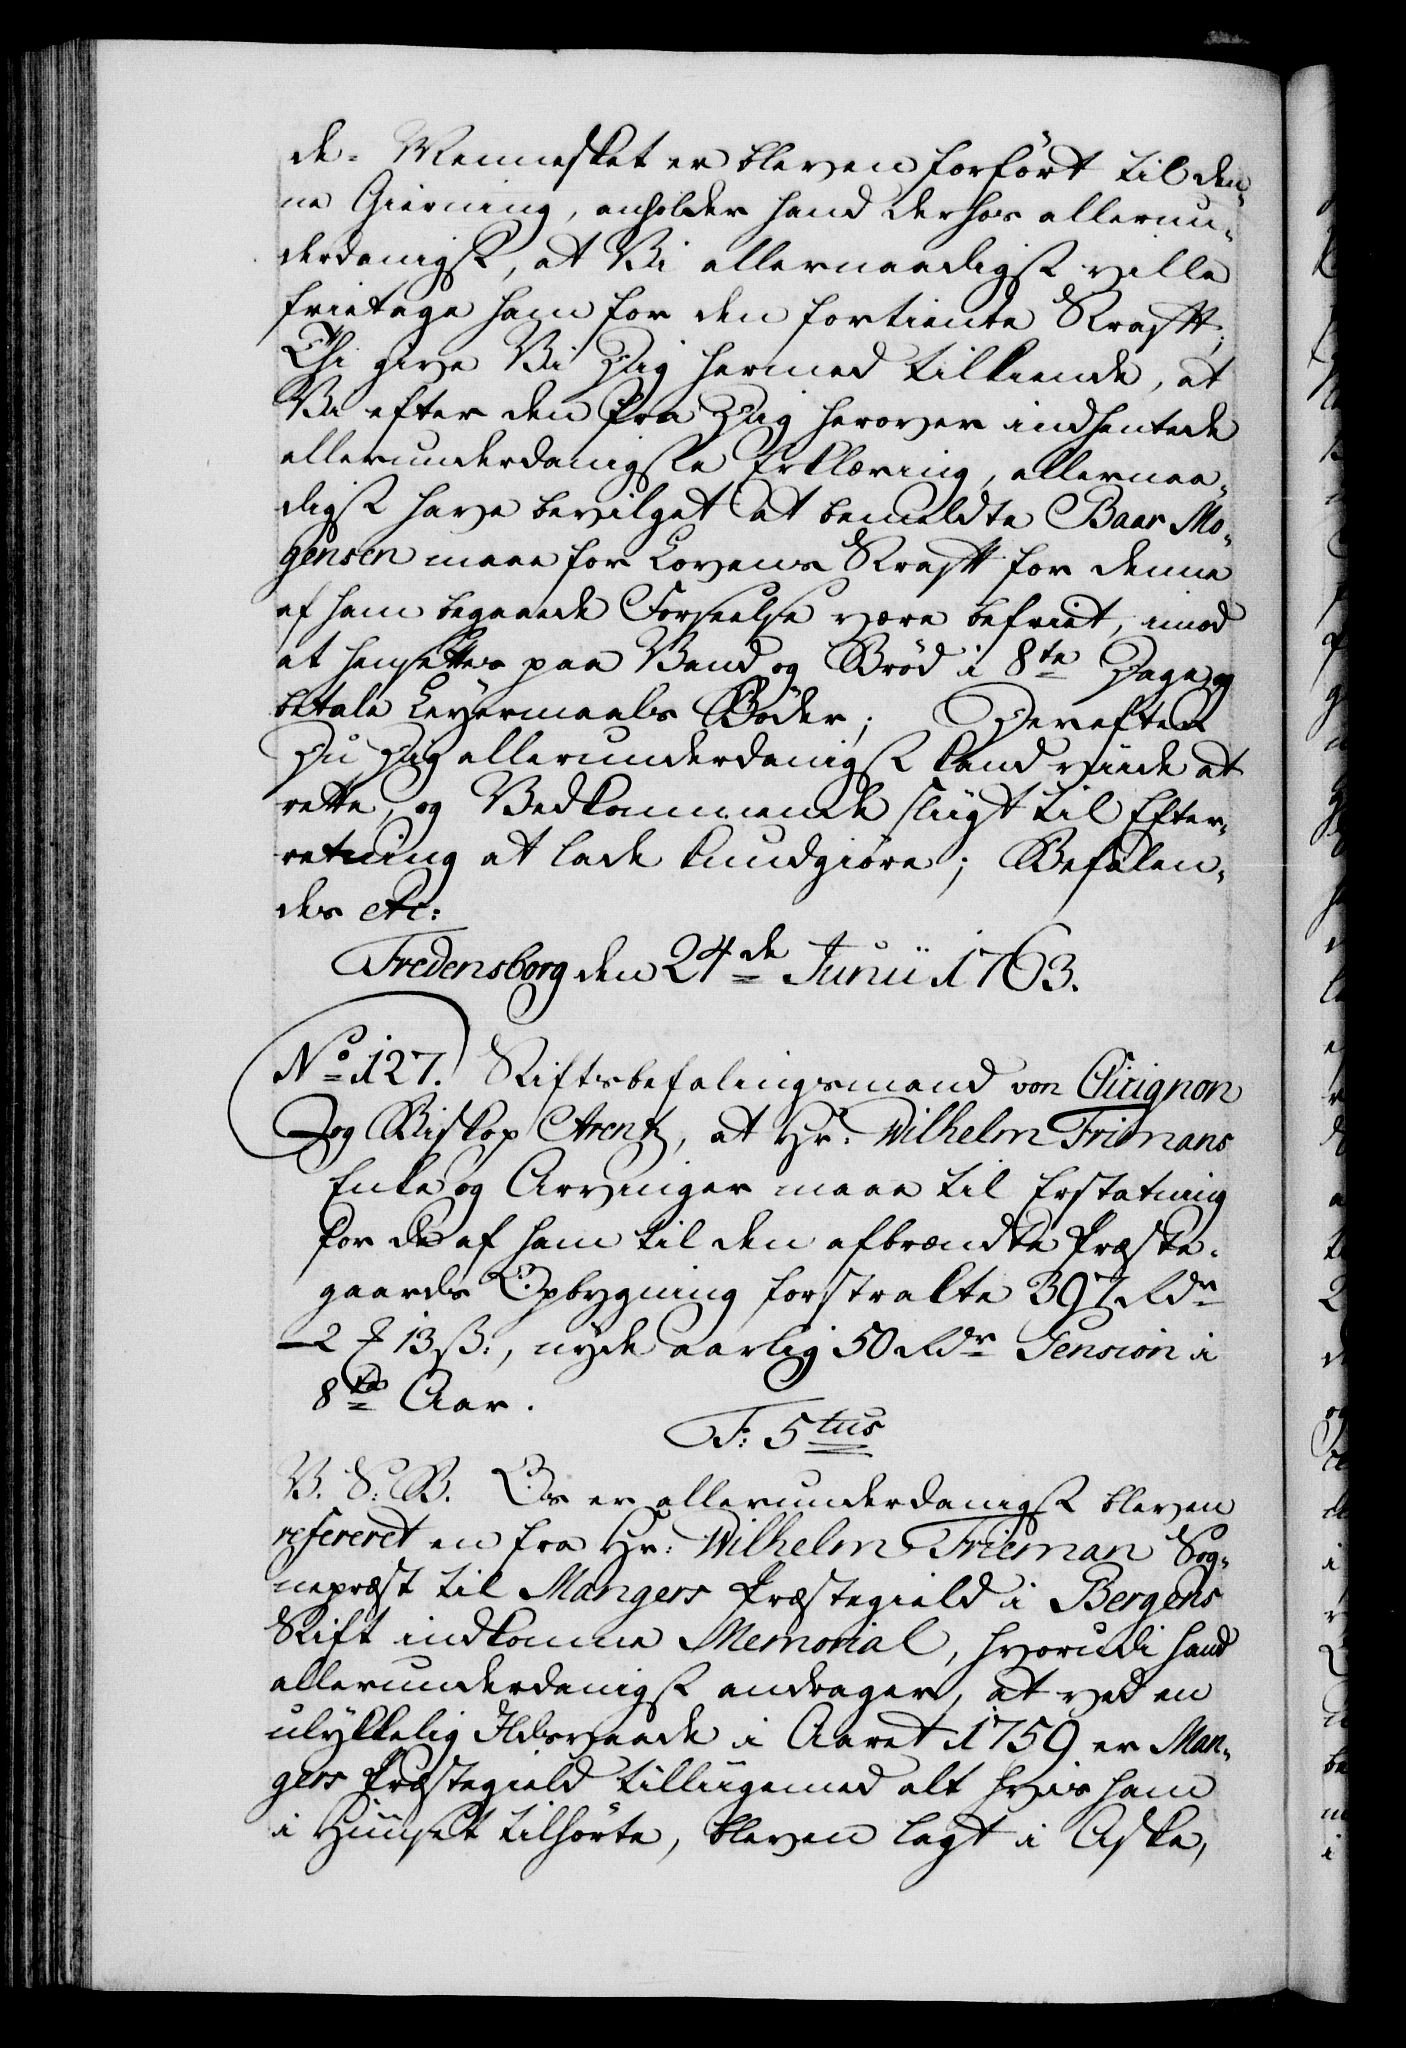 de Mennesket er bleven forført til den„
ne Gierning, anholder hand derhos allerun„
derdanigst, at Vi allernaadigst ville
fritage ham for den fortiente Straff;
Thi give Vi Dig hermed tilkiende, at
Vi efter den fra Dig herover indhentede
allerunderdanigste Erklæring, allernaa„
digst have bevilget at bemeldte Baar Mo„
gensen maae for Lovens Straff for denne
af ham begaaede Forseelse være befriet, imod
at hensettes paa Vand og Brød i 8te Dage og
betale Leyermaals Bøder; Derefter
Du Dig allerunderdanigst kand viide at
rette, og Vedkommende sligt til Efter„
retning at lade kundgiøre; Befalen„
des etc:
Fredensborg den 24de Junii 1763.
No 127. Stiftsbefalingsmand von Cicignon
og Biskop Arentz, at Hr: Wilhelm Frimans
Enke og Arvinger maae til Erstatning
for de af ham til den afbrændte Præste„
gaards Opbygning forstrakte 397 Rdr
2 ₰ 13 ß:, nyde aarlig 50 Rdr Pension i
8te Aar.
F: 5tus
V. S: B. Os er allerunderdanigst bleven
refereret en fra Hr: Wilhelm Frieman Sog„
nepræst til Mangers Præstegield i Bergens
Stift indkomne Memorial, hvorudi hand
allerunderdanigst andrager, at ved en
ulykkelig Ildsvaade i Aaret 1759 er Man„
gers Præstegield tilligemed alt hvis ham
i Huuset tilhørte, bleven lagt i Aske,